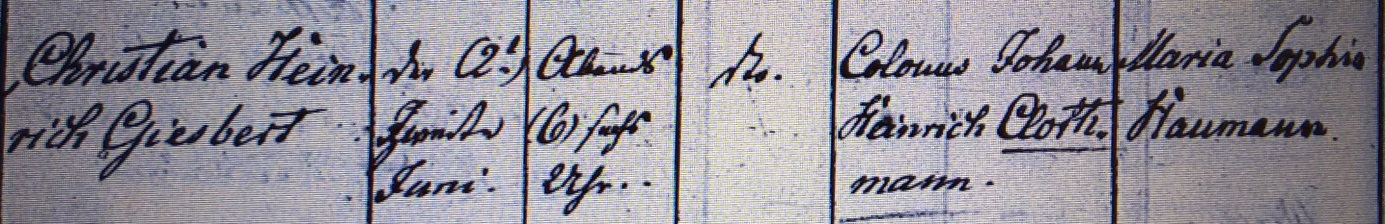 Christian Hein-
rich Giesbert
der (2t)
Zweite
Juni.
Abends
(6) sechs
Uhr..
Colonus Johann
Heinrich Cloth-
mann.
Maria Sophie
Haumann.